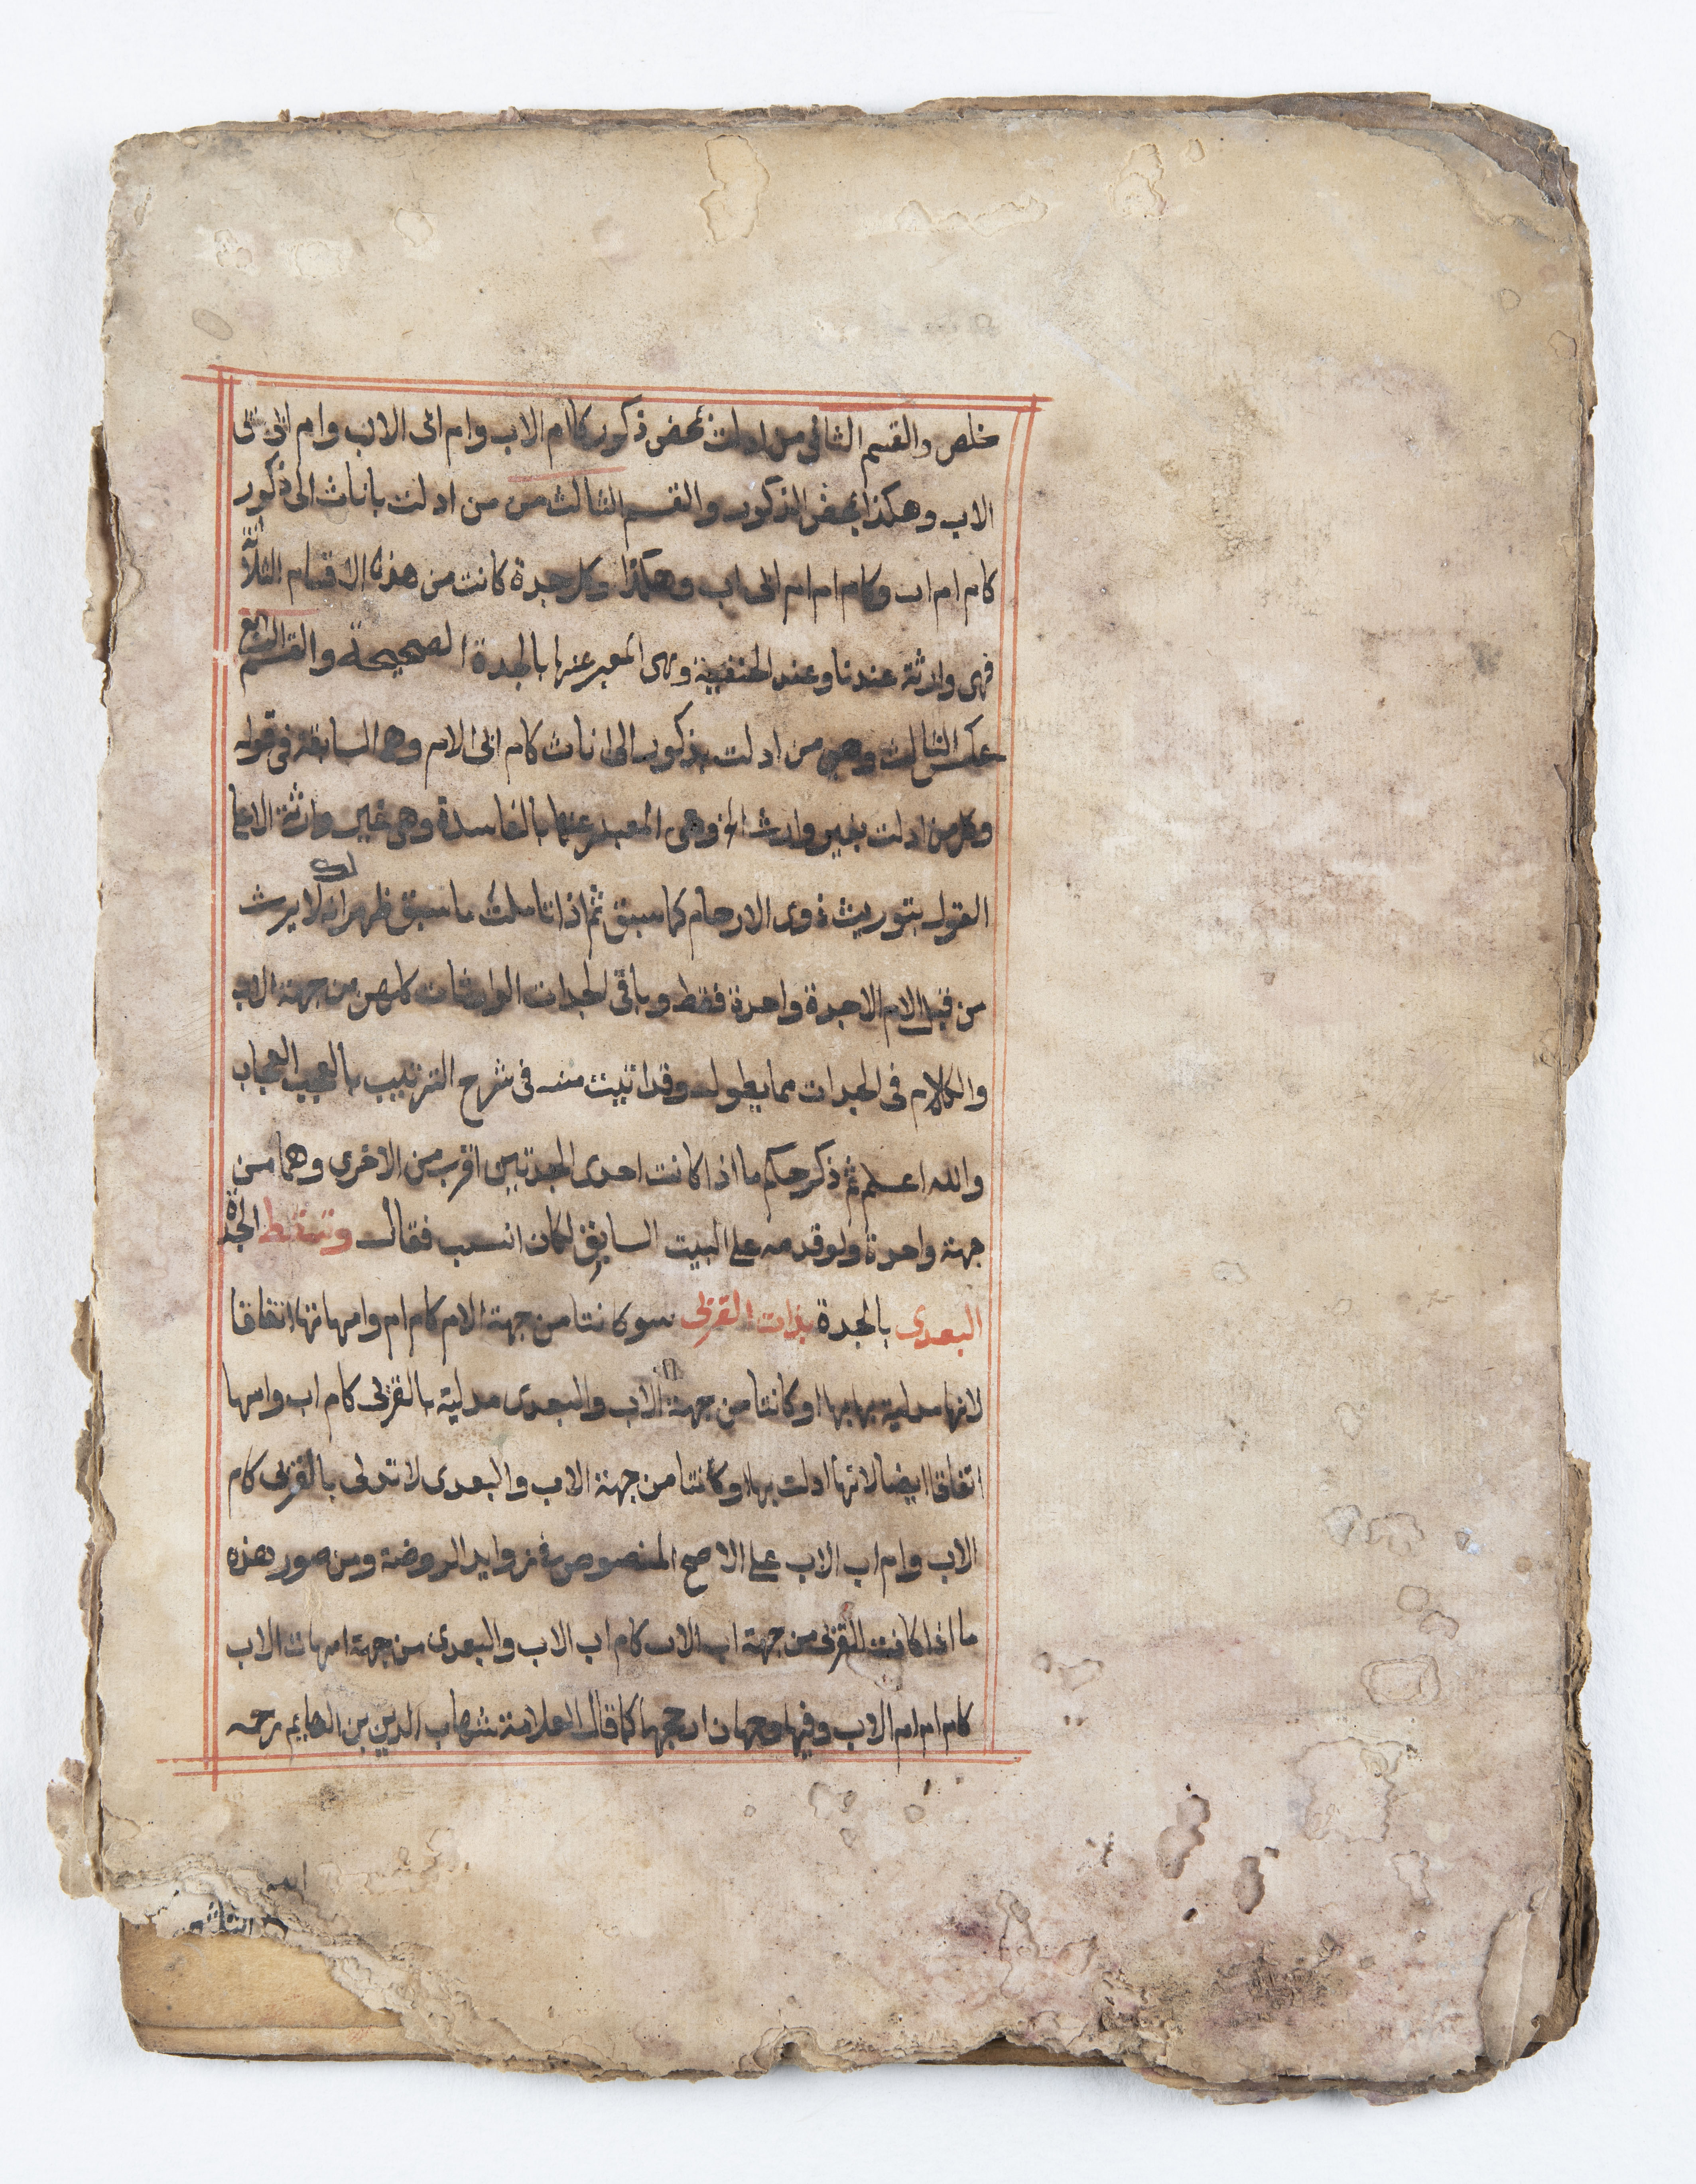 خلص والقسم الثاني من ادلت بمحض ذكور كام الاب وام ابى الاب وام ابى ابى
الاب وهكذا بمحض الذكور والقسم الثالث من من ادلت باناث الى ذكور
كام ام اب وكام ام ام ابى اب وهكذا وكل جدة كانت من هذه الاقسام الثلاثة
فهى وارثة عندنا وعند الحنفية وهى المعبر عنها بالجدة الصحيحة والقسم الرابع
عكس الثالث وهى من ادلت بذكور الى اناث كام ابى الام وهى السابقة فى قوله
وكل من ادلت بغير وارث الخ وهى المعبر عنها بالفاسدة وهى غير وارثة الا على
القول بتوريث ذوى الارحام كما سبق ثم اذا تاملت ما سبق ظهر لك انه لا يرث
من قبل الام الا جدة واحدة فقط وباقى الجدات الوارثات كلهن من جهة الاب
والكلام فى الجدات مما يطول وقد اتيت منه فى شرح الترتيب بالعجب العجاب
والله اعلم ثم ذكر حكم ما اذا كانت احدى الجدتين اقرب من الاخرى وهما من
جهة واحدة ولو قدمه على البيت السابق لكان انسب فقال وتسقط الجدة
البعدى بالجدة بذات القربى سو كانتا من جهة الام كام ام وامهاتها اتفاقا
لانها مدلية بها او كانتا من جهة الاب والبعدى مدلية بالقربى كام اب وامها
اتفاقا ايضا لانها ادلت بها او كانتا من جهة الاب والبعدى لا تدلى بالقربى كام
الاب وام اب الاب على الاصح المنصوص فى زوايد الروضة ومن صور هذه
ما اذا كانت القربى من جهة اب الاب كام اب الاب والبعدى من جهة امهات الاب
كام ام ام الاب وفيها وجهان ارجحها كما قال العلامة شهاب الدين بن الهايم رحمه
الله